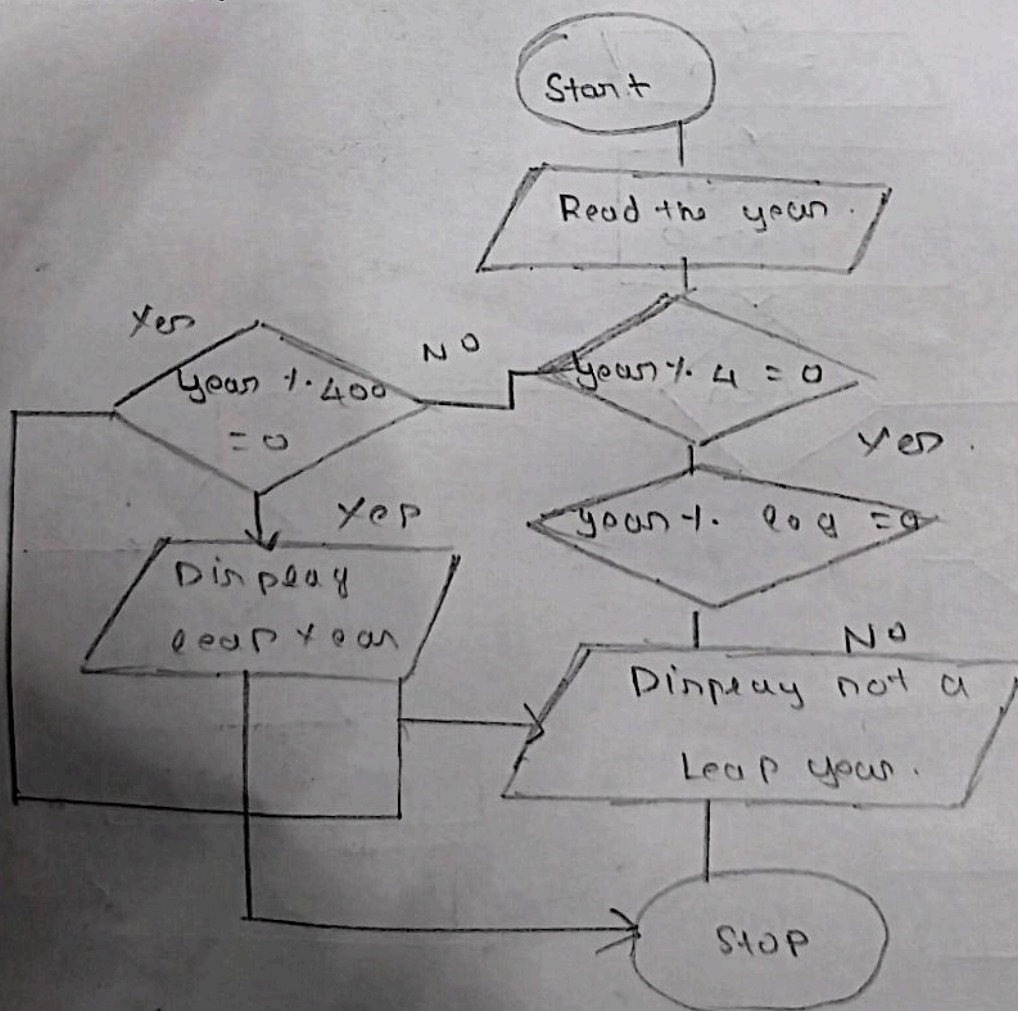 Start
Read the year.
Yes
NO
year % 400
= 0
year % 4 = 0
Yes.
year %. 100 = 0
Yes
Display
leap Year
NO
Display not a
Leap year.
STOP